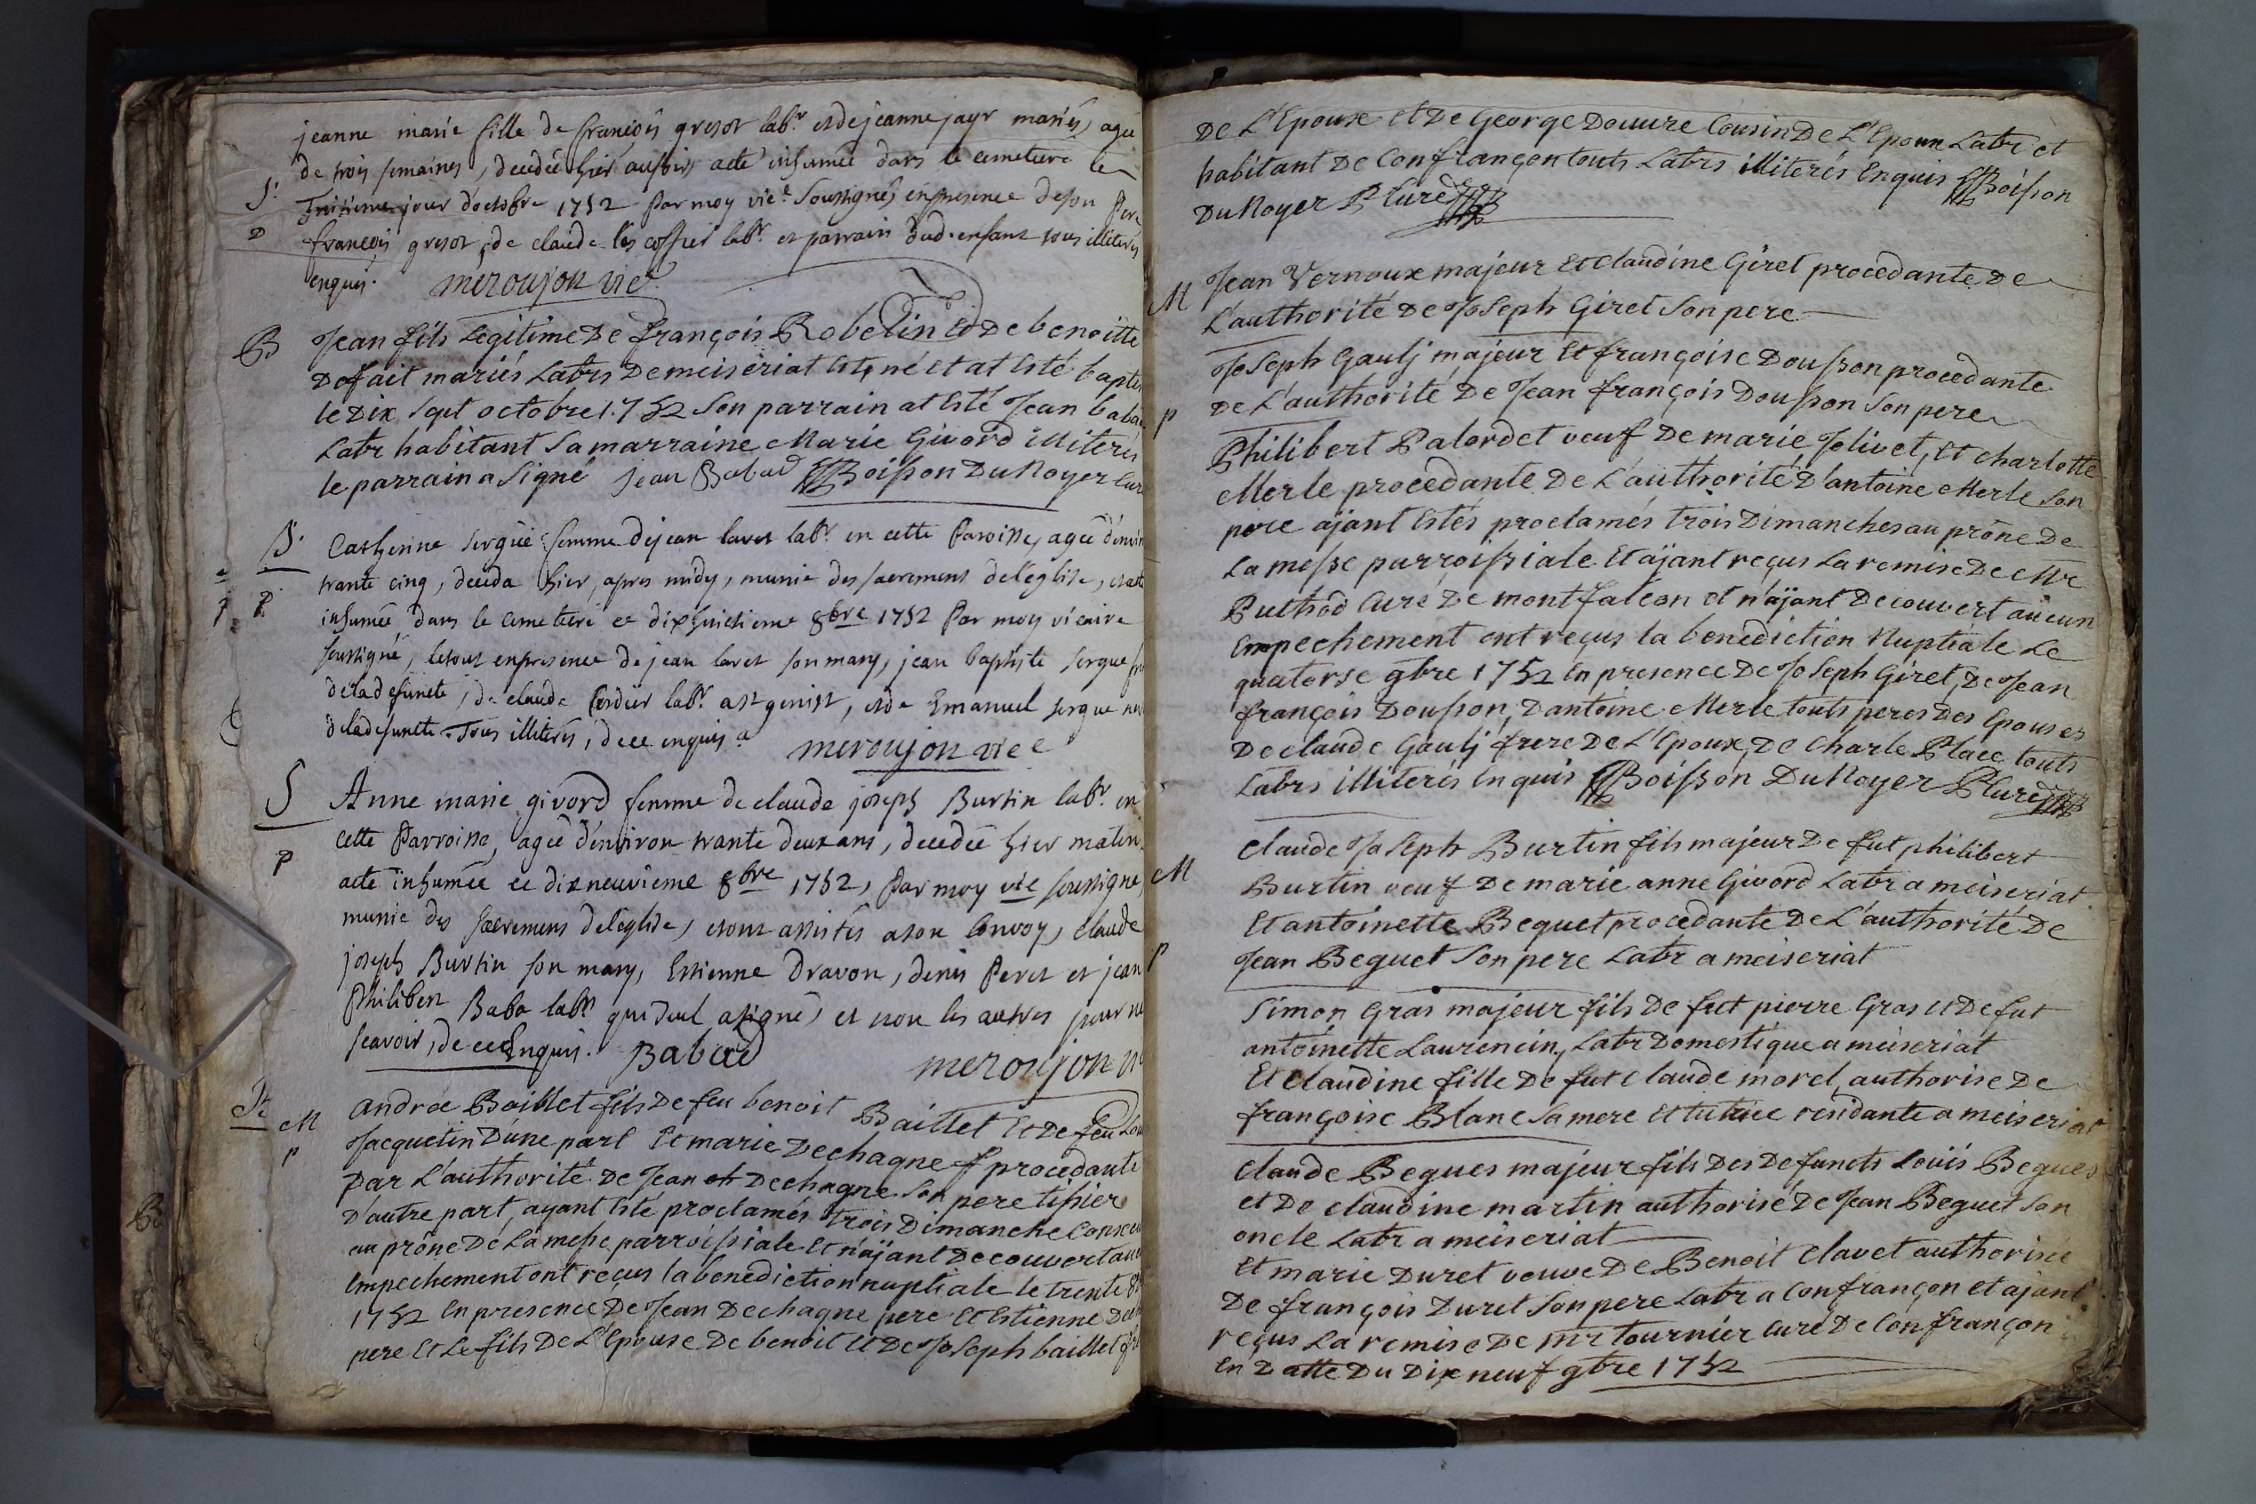 jeanne marie fille de françois gresot labr. et de jeanne jayr mariés, agée
de trois semaines, decedée hier au soir, a eté inhumée dans le cemetiere le
S. jour d'octobre 1752 Par moy vice. Soussigné, en presence de son Pere
D françois gresot, de claude les coffier labr. et parrain dud. enfant tous illiterés
enquis. meroujon vice
B Jean fils Legitime De françois Robelin Et De benoitte
Dofait mariés Labrs De meiseriat Est né et at Esté bapti
le Dix Sept octobre 1752 Son parrain at Esté Jean baba
Labr habitant Sa marraine Marie Givord illiterés
le parrain a Signé Jean Babad Boisson Du Noyer Cur
S. Catherine sergüe femme de jean lavet labr. en cette Paroisse, agée d'envir
trante cinq, deceda hier, apres midy, munie des sacrements de l'eglise,
P inhumée dans le cemetiere ce dixhuictieme 8bre 1752 Par moy vicaire
soussigné, le tout en presence de jean lavet son mary, jean baptiste sergue
de la defuncte, de claude Cordier labr. a st genist, et de Emanuel sergue
de la defuncte. Tous illiterés, de ce enquis meroujon vice
S Anne marie givord femme de claude joseph Burtin labr. en
cette Parroisse, agée d'environ trante deux ans, decedée hier matin
P a eté inhumée ce dixneuvieme 8bre 1752, Par moy vic soussigné
munie des sacremens de l'eglise, et ont assistés a son Convoy, claude
joseph Burtin son mary, Estienne Dravon, denis Peret et jean
Philibert Baba labrs qui seul a signé, et non les autres pour ne
scavoir, de ce Enquis. Babad meroujon
M andrée Baillet fils De feu benoit Baillet Et De feu
P Jacquetin D'une part Et marie Dechagne procedante
Par L'authorité De Jean Dechagne Son pere tissier
D'autre part, ayant Esté proclamés trois Dimanche Consecu
au prône De La messe parroissiale Et n'ajant Decouvert aucu
Empechement ont reçus la benediction nuptiale le trente 8
1752 En presence De Jean Dechagne pere Et Estienne Dech
pere Et Le fils De L'Epouse De benoit Et De Joseph baillet
De L'Epoux Et De George Douvre Cousin De L'Epoux Labr et
habitant De Confrançon touts Labrs illiterés Enquis Boisson
Du Noyer P Curé
M Jean Vernoux majeur Et Claudine Giret procedante De
L'authorité De Joseph Giret Son pere
Joseph Gaulj majeur Et françoise Dousson procedante
P De L'authorité De Jean françois Dousson Son pere
Philibert Palordet veuf De marie Jolivet, Et charlotte
Merle procedante De L'authorité D'antoine Merle Son
pere ajant Estés proclamés trois Dimanches au prône De
La messe parroissiale Et aÿant reçus La remise De Mr
Puthod Curé De montfalcon et n'aÿant Decouvert aucun
Empechement ont reçus la benediction Nuptiale Le
quatorse 9bre 1752 En presence De Joseph Giret, De Jean
françois Dousson, D'antoine Merle touts peres Des Epouses
De claude Gaulj frere De L'Epoux, De Charle Place touts
Labrs illiterés Enquis Boisson Du Noyer P Curé
M Claude Joseph Burtin fils majeur De fut philibert
Burtin veuf De marie anne Givord Labr a meiseriat
Et antoinette Bequet procedante De L'authorité De
P Jean Beguet Son pere Labr a meiseriat
Simon Gras majeur fils De fut pierre Gras Et De fut
antoinette Laurencin, Labr Domestique a meiseriat
Et Claudine fille De fut Claude morel, authorise De
françoise Blanc Sa mere Et tutrice residante a meiseriat
Claude Begues majeur fils Des Defuncts Loüis Begues
et De claudine martin authorisé De Jean Beguet Son
oncle Labr a meiseriat
et marie Duret veuve De Benoit Clavet authorisée
De françois Duret Son pere Labr a Confrançon et ajant
reçus La remise De Mr tournier Curé De Confrançon
En Datte Du Dix neuf 9bre 1752